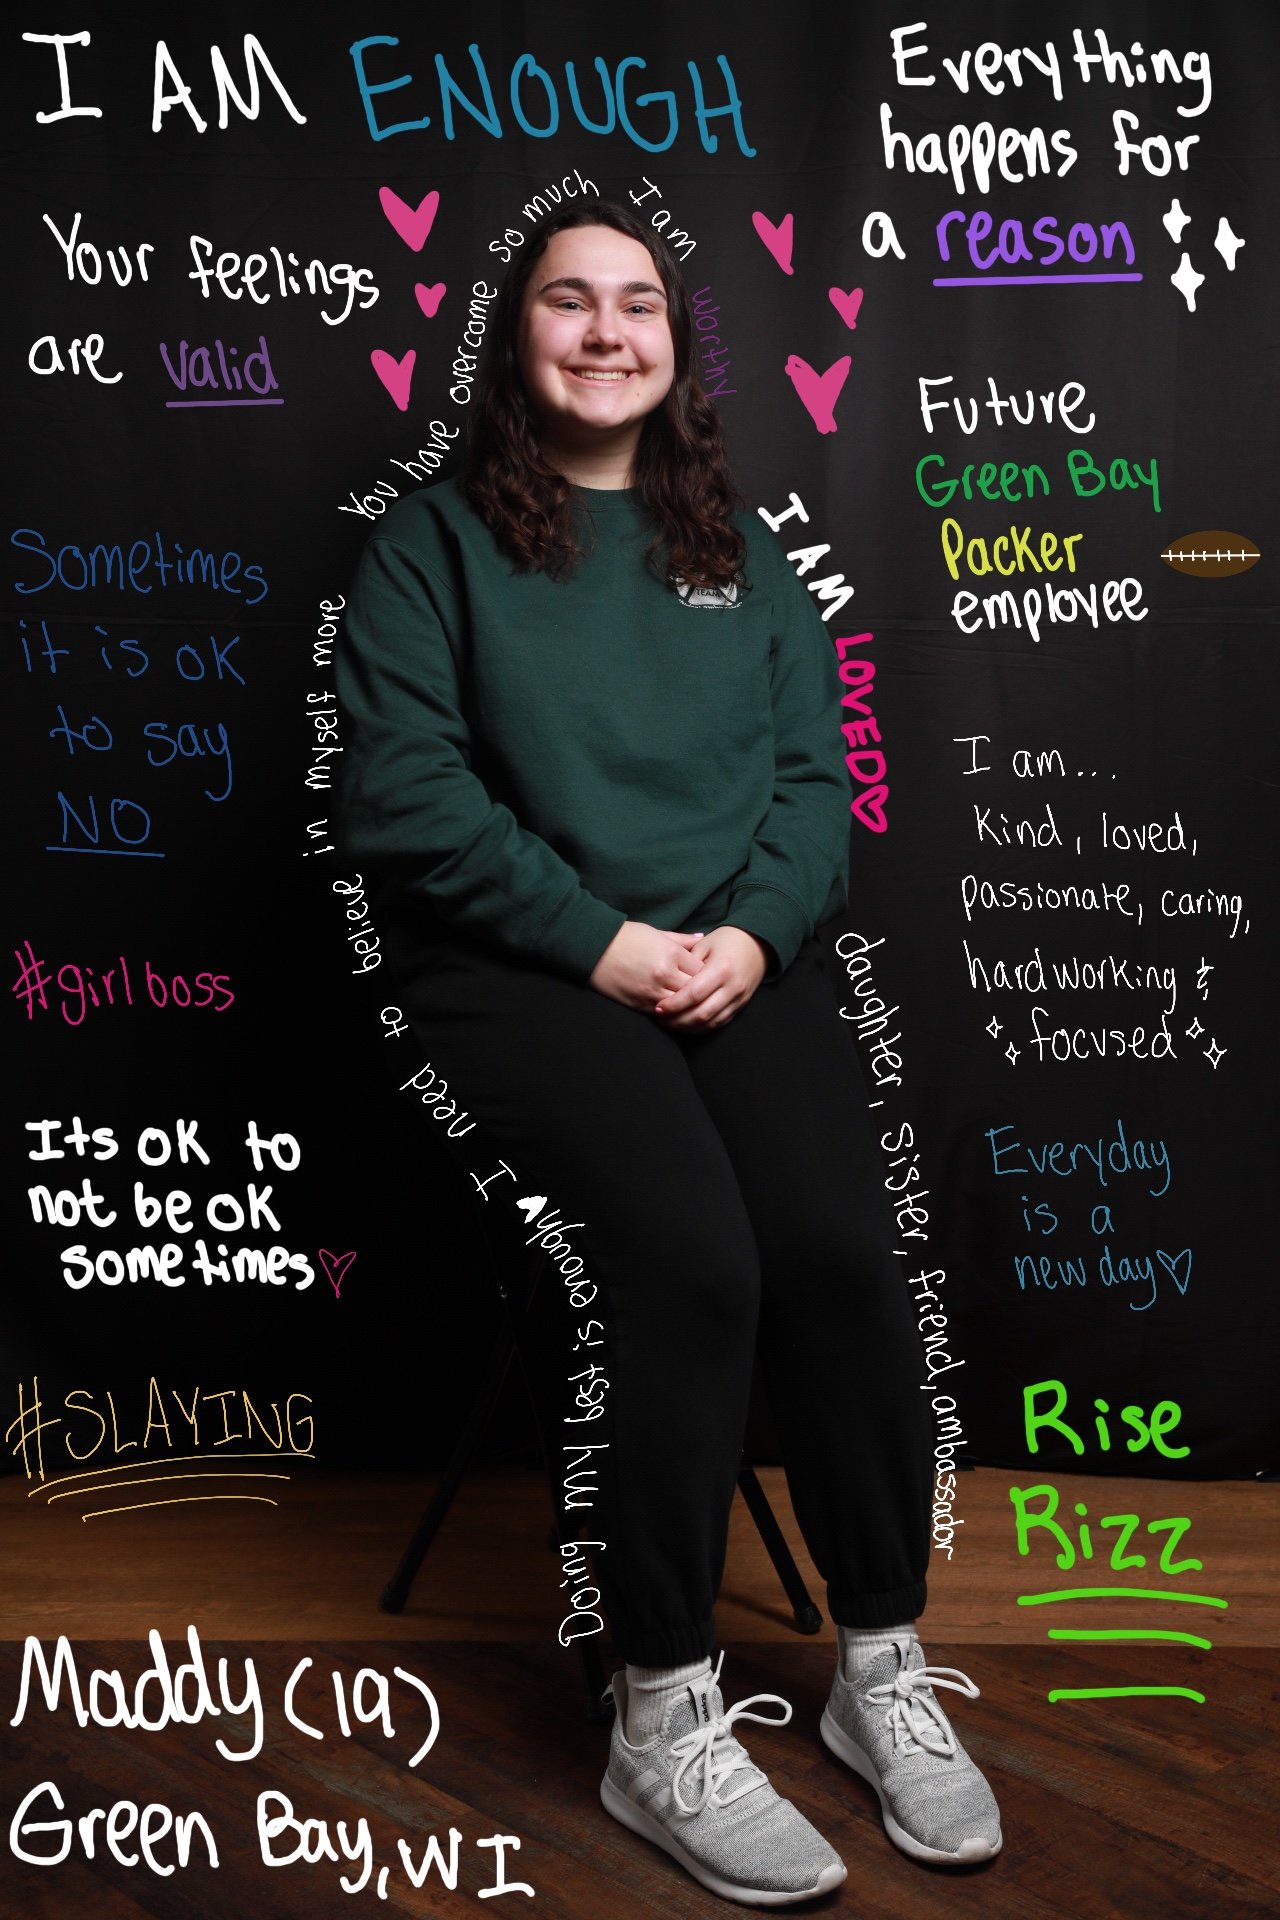 I AM ENOUGH
Everything
happens for
a reason
Your feelings
are valid
You have overcome so much
I am
worthy
Future
Green Bay
Packer
employee
I AM
LOVED
TEAM
Sometimes
it is ok
to say
NO
I need to believe in myself more
I am...
Kind, loved,
passionate, caring,
hardworking &
focused
#girlboss
daughter, sister, friend, ambassador
Its ok to
not be ok
sometimes
Everyday
is a
new day
Doing My best is enough
#SLAYING
Rise
Rizz
Maddy (19)
Green Bay, WI
adidas